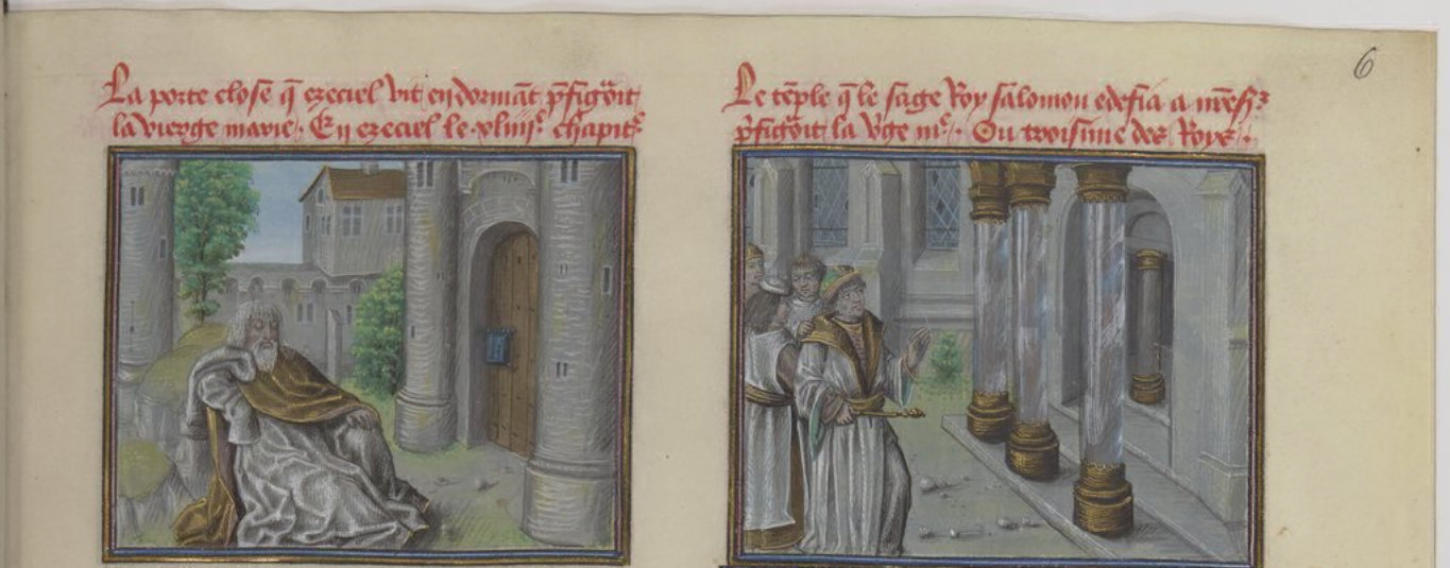 La porte close q̄ ezeciel vit en dormāt p̄figuroit
la vierge marie. En ezeciel le .xliiiie. chapitre
Le tēple q̄ le sage Roy salomon edefia a nr̄e sr
p̄figuroit la vge me. Ou troisime des Roys.
6